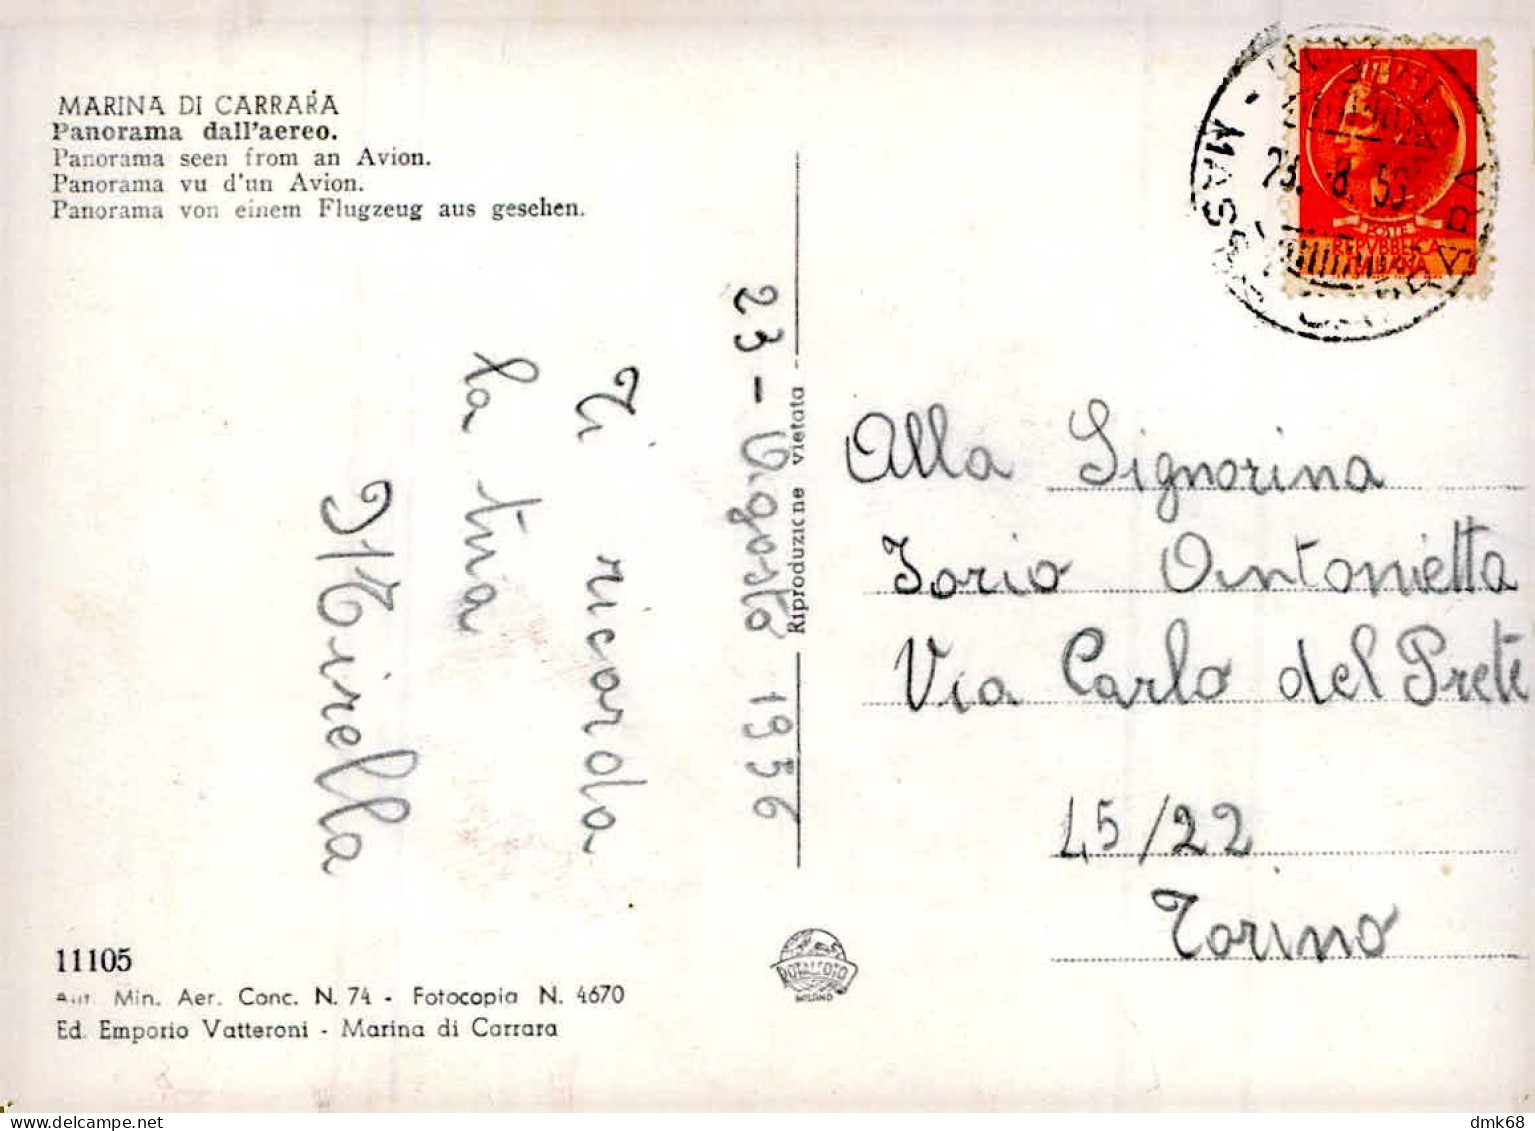 MARINA DI CARRARA
Panorama dall'aereo.
Panorama seen from an Avion.
Panorama vu d'un Avion.
Panorama von einem Flugzeug aus gesehen.
23 - Agosto 1956
Ti ricorda
la tua
Mirella
Riproduzione vietata
MASSA CARRARA
23. 8. 56
POSTE
REPVBBLICA
ITALIANA
Alla Signorina
Iorio Antonietta
Via Carlo del Prete
45/22
Torino
11105
Aut. Min. Aer. Conc. N. 74 - Fotocopia N. 4670
Ed. Emporio Vatteroni - Marina di Carrara
ROTALFOTO
MILANO
www.delcampe.net
dmk68